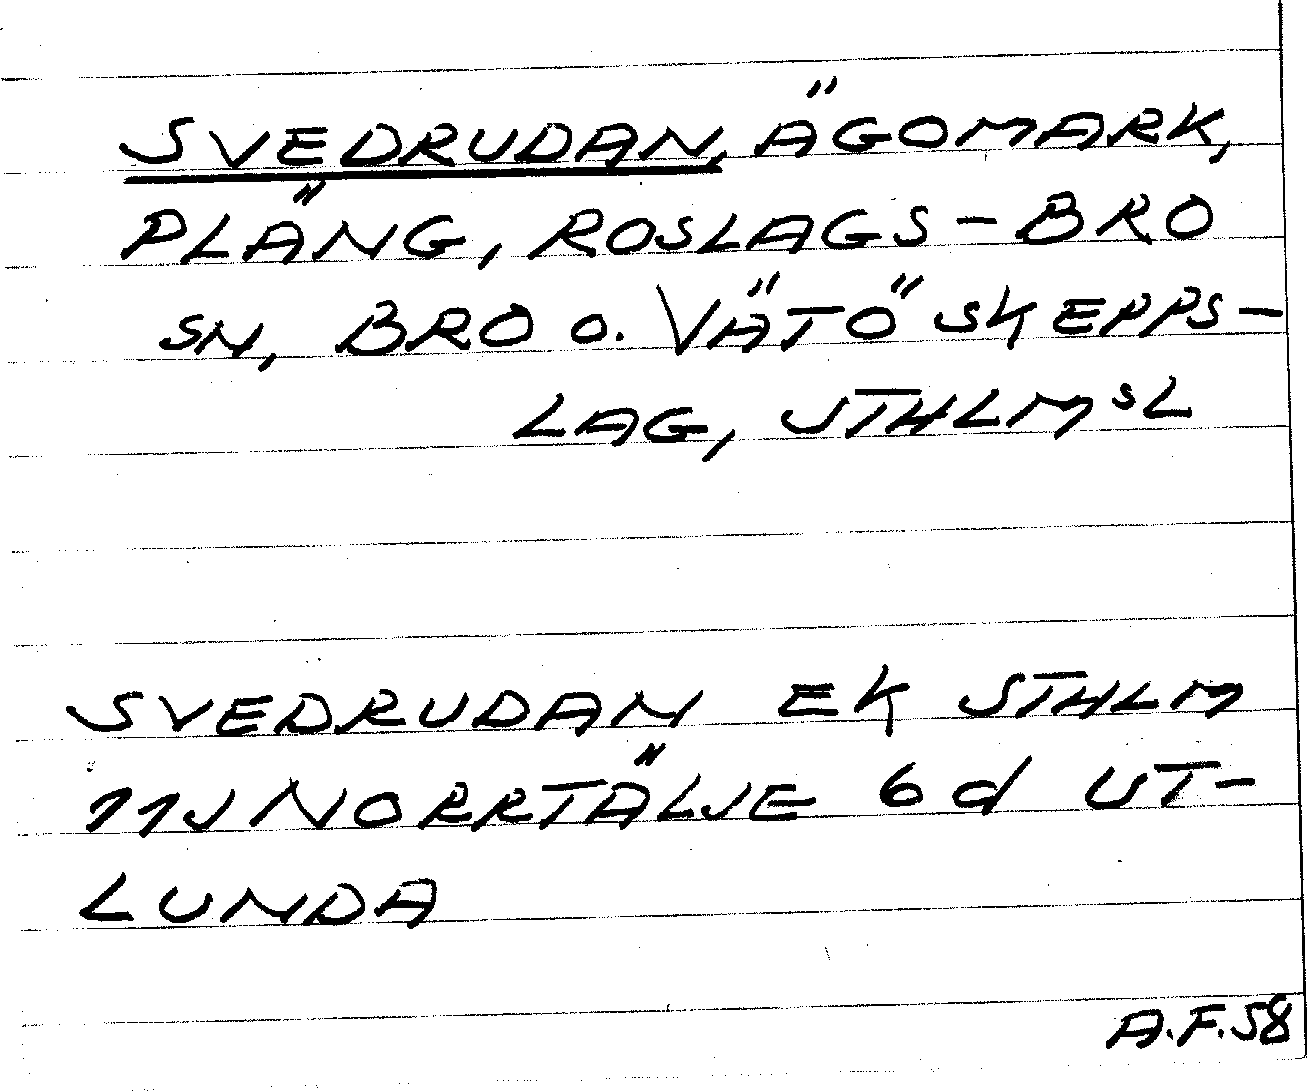 SVEDRUDAN, ÄGOMARK,
PLÄNG, ROSLAGS-BRO
SN, BRO O. VÄTÖ SKEPPS-
LAG, STHLMSL
SVEDRUDAN EK STHLM
11J NORRTÄLJE 6d UT-
LUNDA
A.F.58